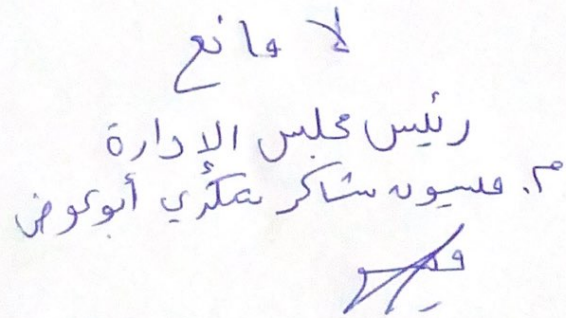 لا مانع
رئيس مجلس الإدارة
م. ميسون شاكر شكري أبو عوض